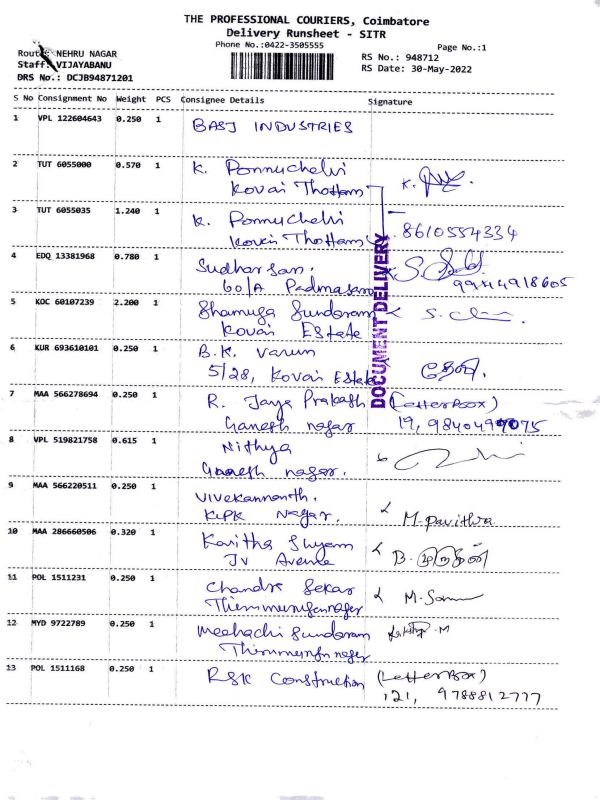 THE PROFESSIONAL COURIERS, Coimbatore
Delivery Runsheet - SITR
Phone No.:0422-3505555
Page No.:1
Route: NEHRU NAGAR
RS No.: 948712
Staff: VIJAYABANU
RS Date: 30-May-2022
DRS No.: DCJB94871201
S No Consignment No Weight PCS Consignee Details Signature
1 VPL 122604643 0.250 1 BASJ INDUSTRIES
2 TUT 6055000 0.570 1 K. Ponnuchelvi
Kovai Thottam K.
3 TUT 6055035 1.240 1 K. Ponnuchelvi
Kovai Thottam 8610554334
4 EDQ 13381968 0.780 1 Sudharsan.
60/A Padmasam 9944918605
5 KOC 60107239 2.200 1 Shamuga Sundaram
Kovai Estate
6 KUR 693610101 0.250 1 B.K. Varun
5/28, Kovai Estate
DOCUMENT DELIVERY
7 MAA 566278694 0.250 1 R. Jaya Prakash (LetterBox)
Ganesh nagar 19,
8 VPL 519821758 0.615 1 Nithya
Ganesh nagar.
9 MAA 566220511 0.250 1 Vivekannanth.
KPK Nagar. M. Pavithra
10 MAA 286660506 0.320 1 Kavitha Shyam
JV Avenue B. முருகன்
11 POL 1511231 0.250 1 Chandra Sekar
Thirumurugannagar
12 MYD 9722789 0.250 1 Meenachi Sundaram
13 POL 1511168 0.250 1 RSK Construction (LetterBox)
121, 9788812777